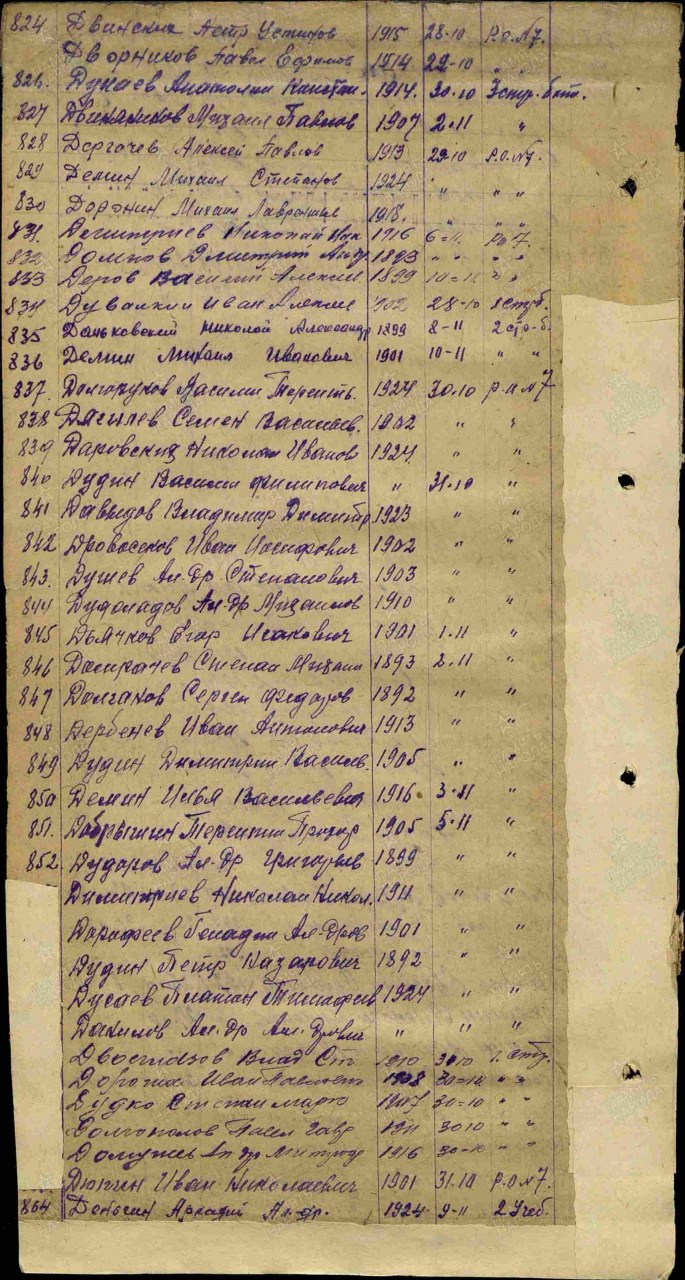 824 Двинских Петр Устинов 1915 28-10 Р.о.N7.
Дворников Павел Ефимов 1914 29-10 " "
826. Дунаев Анатолий Констан. 1914. 30.10 Зстр. бат.
827 Михаил Павлов 1907 2.11 "
828 Дергачев Алексей Павлов 1913 29-10 Р.о.N7.
829 Демин Михаил Степанов 1924 " " "
830 Доронин Михаил 1918. " " "
831. Николай Ник 1916 6=11. Ро 7.
832 1893 " " " "
833 Деров Василий Алексеи 1899
834 Дувалкин Иван 28-10 1стр б.
835 Даньковский Николай Александр 1899 8-11 2стр-б.
836 Демин Михаил Иванович 1901 10-11 " "
837. Долгоруков Василий Терентъ. 1924 30.10 р.о N7
838 Семен Васильев. 1902 " "
839 Даровских Николай Иванов 1924. " "
840 Дудин Василий Филипович " 31.10 "
841 Давыдов Владимир Димитр 1923 " "
842 Дровосеков Иван Иосифович 1902 " "
843. Душев Ал-др Степанович 1903 " "
844 Дудоладов Ал-др Михаилов 1910 " "
845 Дьячков Егор Исакович 1901 1.11 "
846 Степан Михаил 1893 2.11 "
847 Долгаков Сергеи Федоров 1892 " "
848 Дербенев Иван Антонович 1913 " "
849 Дудин Димитрии Василь. 1905 " "
850 Демин Илья Васильевич 1916. 3.11 "
851. Добрынин Терентии Прохор 1905 5.11 "
852 Дударов Ал-др Григорьев 1899 " "
Димитриев Николаи Никол. 1911 " "
Дорофеев Генадии Ал-дров 1901 " "
Дудин Петр Назарович 1892 " "
Дусаев Платон Тимофеев 1924 " "
Данилов Ал-др Ал-дрович " " "
Двоеглазов Влад Ст 1910 30 10
Иван 1908 30=10 " "
Дудко Степан Март 1907 30=10 " "
Долгополов Павел Гавр 1911 30 10 " "
1916 30=10 " "
Дюпин Иван Николаевич 1901 31.10 р.о N7.
864 Деньгин Аркадий Ал-др. 1924 9-11 2 Учеб.